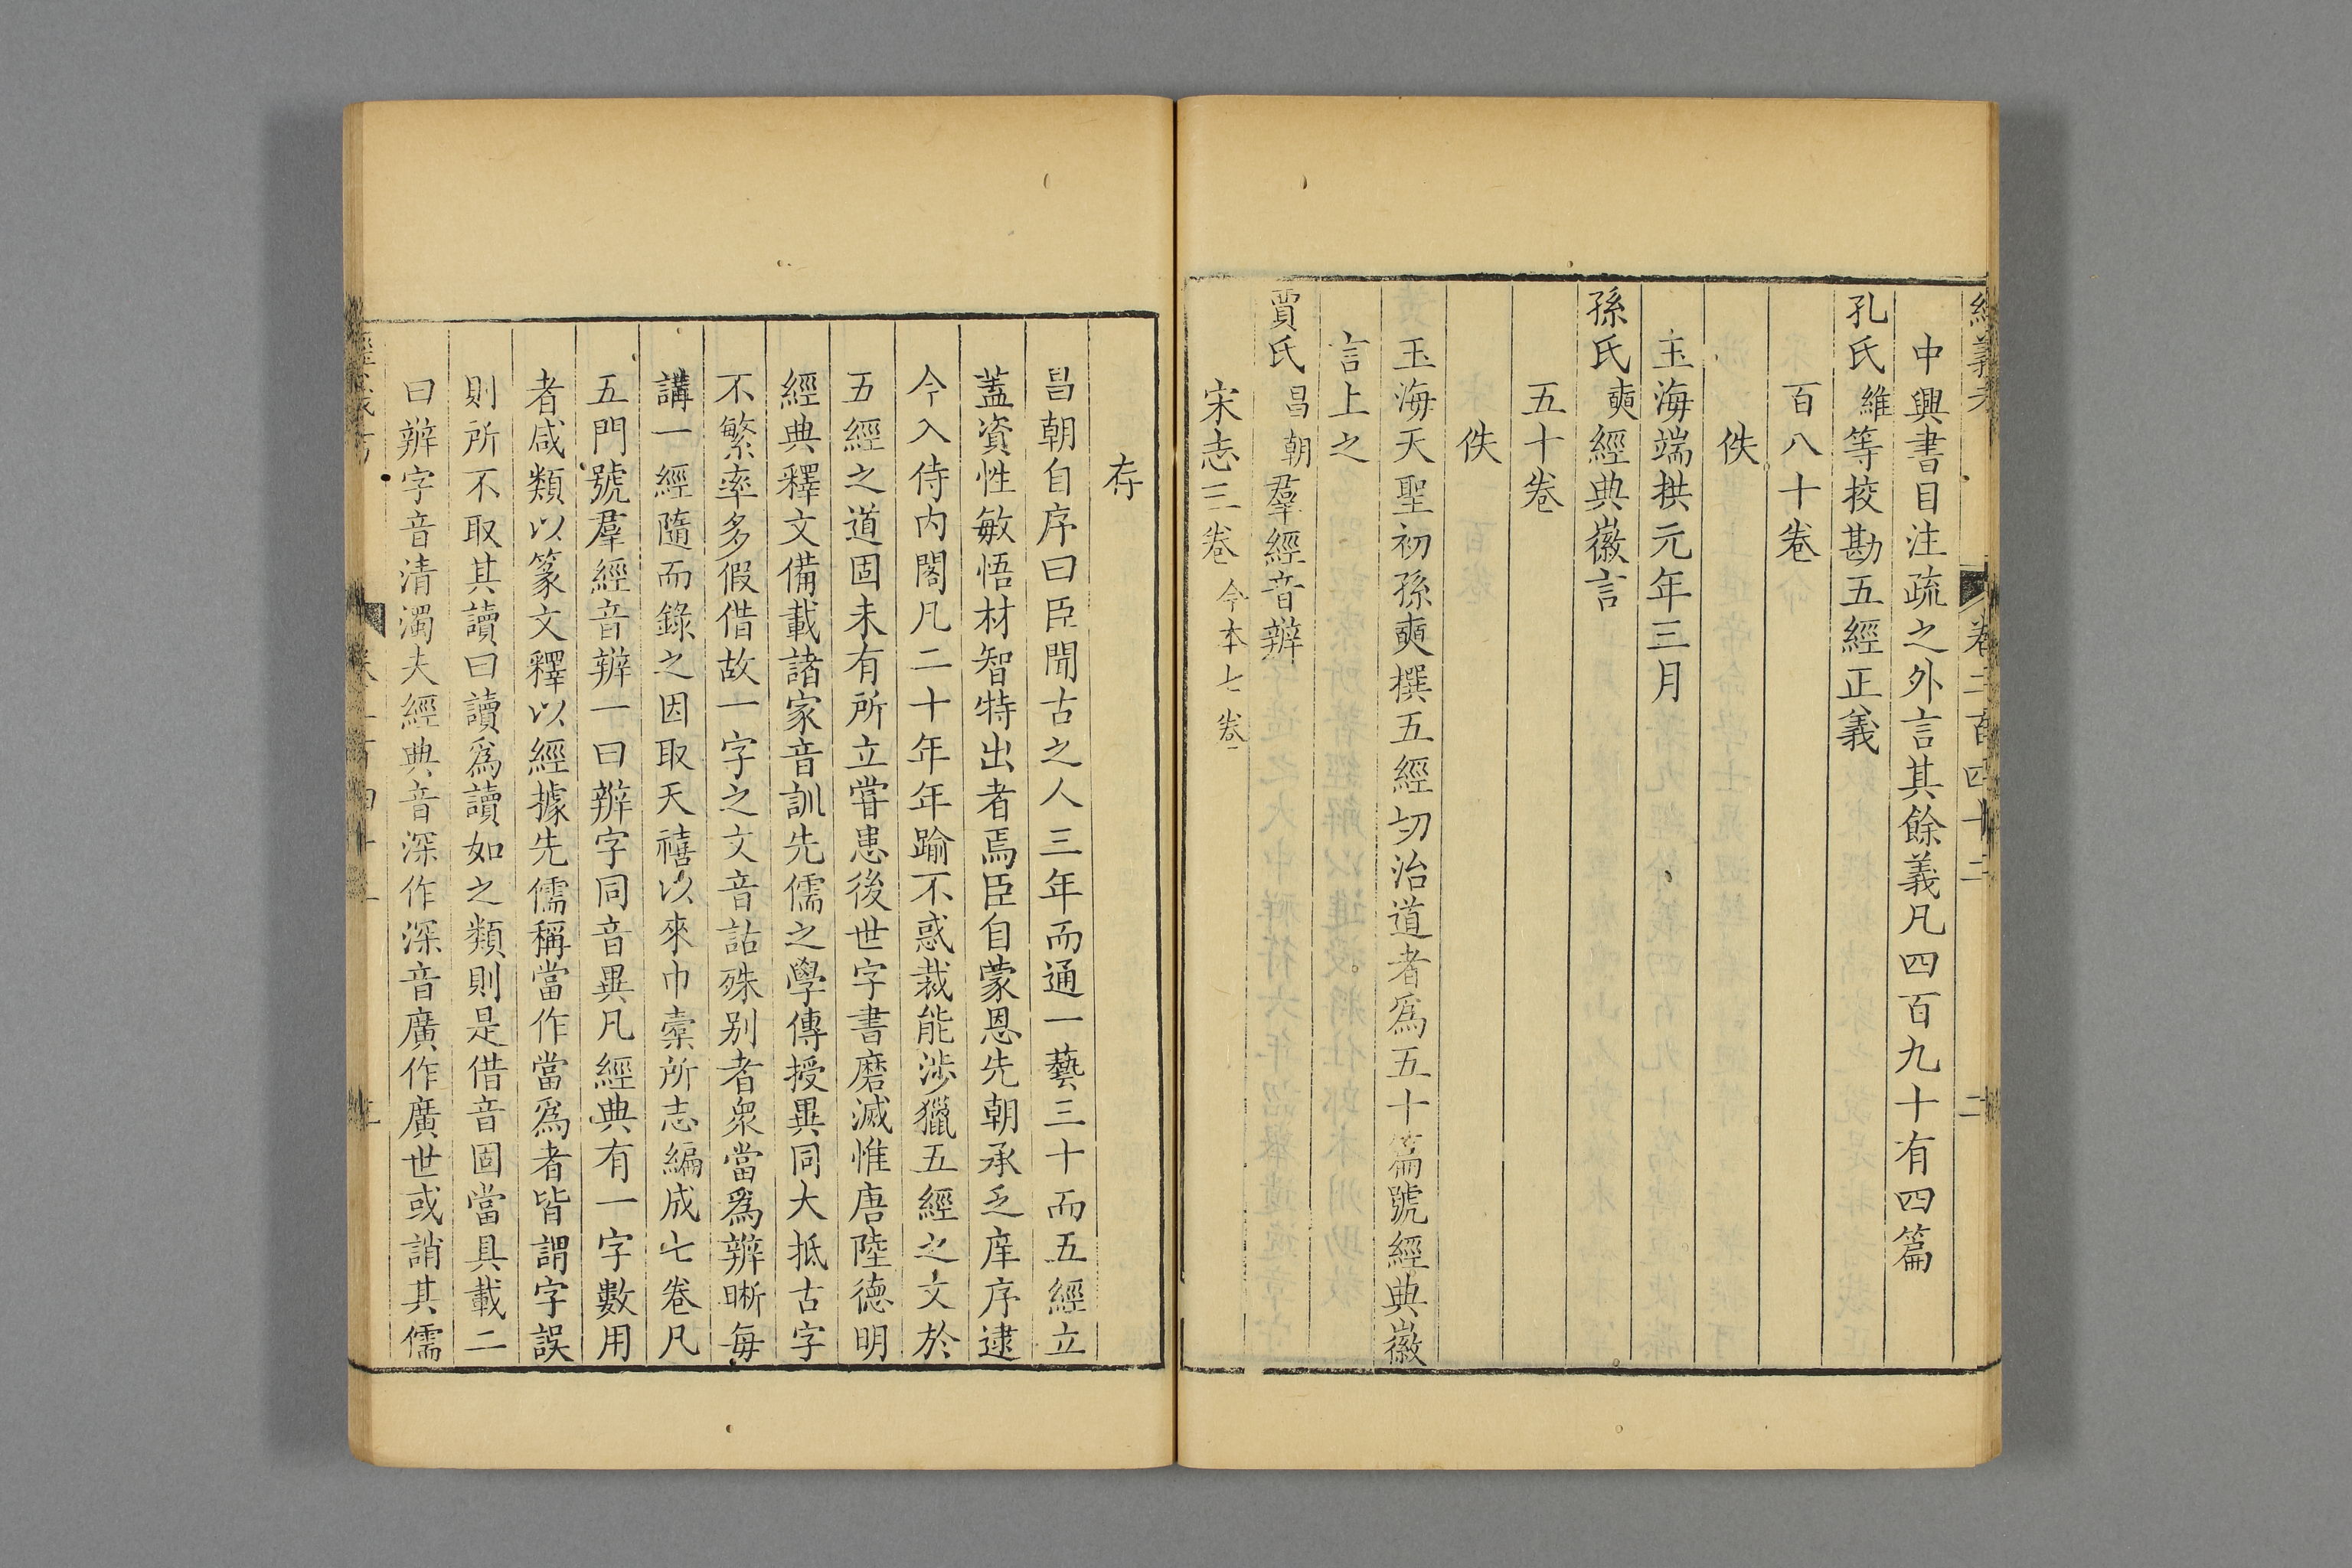 經義考 卷二百四十二 二
中興書目注疏之外言其餘義凡四百九十有四篇
孔氏維等挍勘五經正義
百八十卷
佚
玉海端拱元年三月
孫氏奭經典徽言
五十卷
佚
玉海天聖初孫奭撰五經切治道者爲五十篇號經典徽
言上之
賈氏昌朝羣經音辨
宋志三卷今本七卷
存
昌朝自序曰臣聞古之人三年而通一藝三十而五經立
蓋資性敏悟材智特出者焉臣自蒙恩先朝承乏庠序逮
今入侍内閣凡二十年年踰不惑裁能涉獵五經之文於
五經之道固未有所立嘗患後世字書磨滅惟唐陸德明
經典釋文備載諸家音訓先儒之學傳授異同大抵古字
不繁率多假借故一字之文音詁殊别者衆當爲辨晰每
講一經隨而錄之因取天禧以來巾橐所志編成七卷凡
五門號羣經音辨一曰辨字同音異凡經典有一字數用
者咸類以篆文釋以經據先儒稱當作當爲者皆謂字誤
則所不取其讀曰讀爲讀如之類則是借音固當具載二
曰辨字音清濁夫經典音深作深音廣作廣世或誚其儒